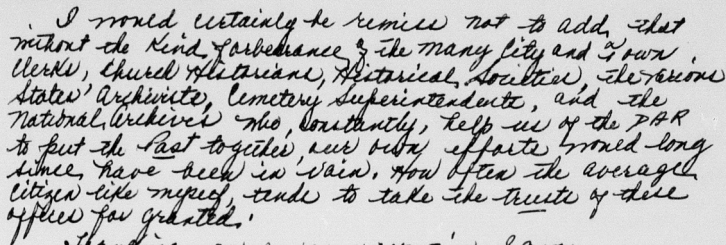 I would certainly be remiss not to add, that
without the kind forbearance of the many City and Town
Clerks, Church Historians, Historical Societies, the various
States' Archivists, Cemetery Superintendents, and the
National Archives who, constantly, help us of the DAR
to put the Past together, our own efforts would long
since, have been in vain. How often the average
citizen like myself, tends to take the trusts of these
offices for granted.